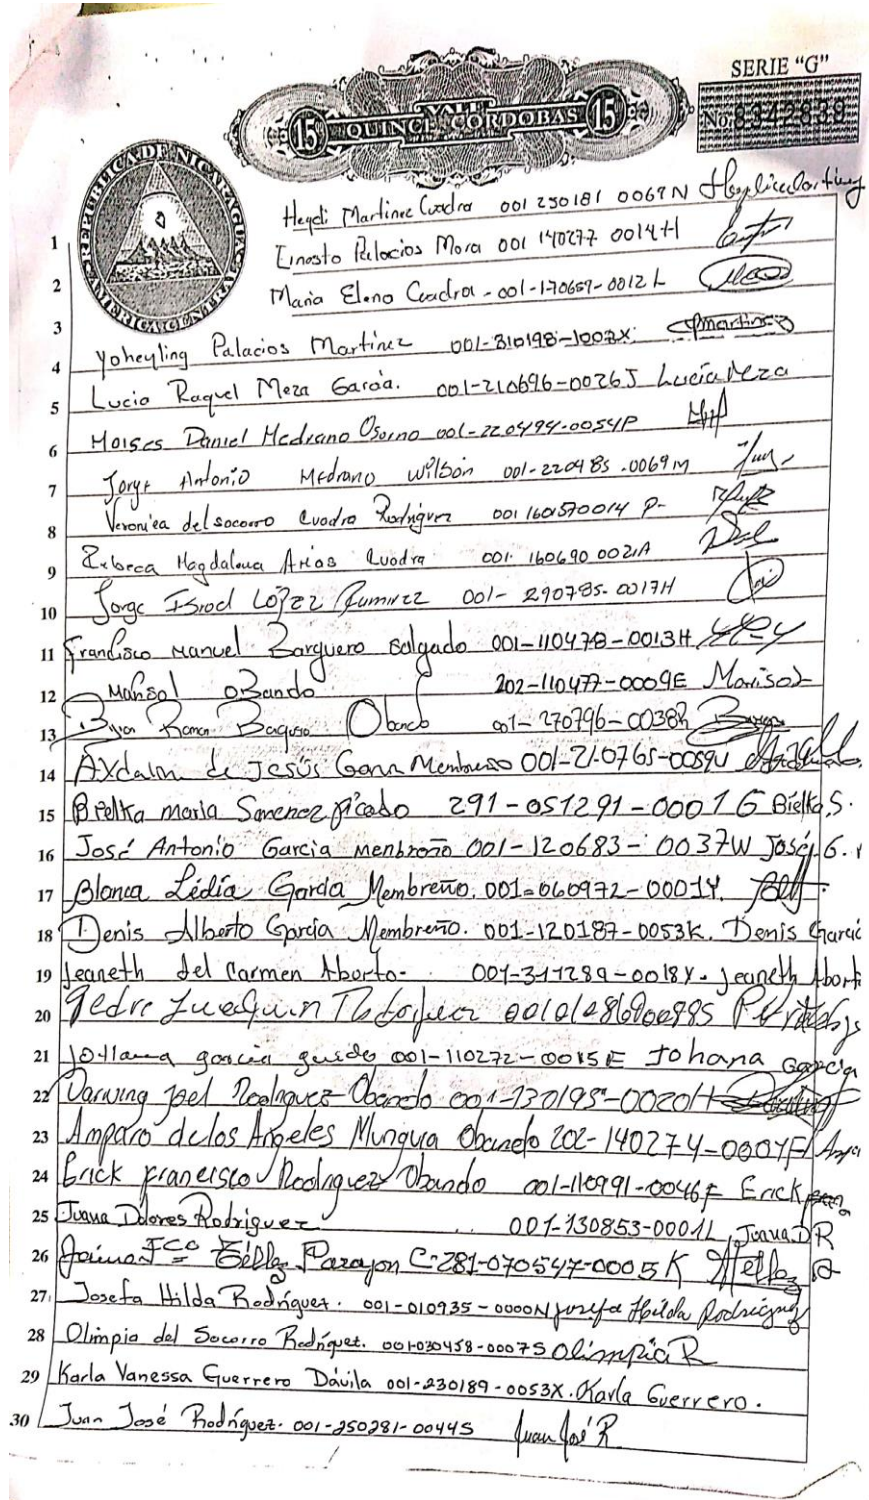 SERIE “G”
VALE
15 QUINCE CORDOBAS 15
No. 8342839
REPUBLICA DE NICARAGUA
AMERICA CENTRAL
Heydi Martinez Cuadra 001 250181 0069N
1 Ernesto Palacios Mora 001 140277 0014H
2 Maria Elena Cuadra - 001-170657-0012L
3 Yoheyling Palacios Martinez 001-310198-1007X
4 Lucia Raquel Meza Garcia. 001-210696-0026J Lucía Meza
5 Moises Daniel Medrano Osorno 001-220494-0054P
6 Jorge Antonio Medrano Wilson 001-220485-0069M
7 Veronica del socorro Cuadra Rodriguez 001 160157 0014 P-
8 Rebeca Magdalena Arias Cuadra 001- 160690 0021A
9 Jorge Israel López Ramirez 001- 290785-0017H
10 Francisco Manuel Barquero Salgado 001-110478-0013H
11 Marisol Obando 202-110477-0009E Marisol
12 Ramon Obando 001-270796-0038R
13 Axdalin de Jesús Membreño 001-210765-0059U
14 Bielka maria Sanchez picado 291-051291-0001G Bielka.S.
15 José Antonio Garcia menbreño 001-120683-0037W José G.
16 Blanca Lidia Garcia Membreño. 001-060972-0001Y.
17 Denis Alberto García Membreño. 001-120187-0053K. Denis Garcia
18 Jeaneth del Carmen Aborto- 001-311289-0018Y. Jeaneth Abort
19 Pedro Juaquin
20 Johana garcia guido 001-110272-0015E Johana Garcia
21 Darwing Joel Rodriguez Obando 001-130195-0020H
22 Amparo de los Angeles Munguia Obando 202-140274-0004F
23 Erick francisco Rodriguez Obando 001-110991-0046F Erick
24 Juana Dolores Rodriguez 001-130853-0001L Juana D R
25 Jaime Fco Téllez Parajon C-281-070547-0005K
26 Josefa Hilda Rodríguez. 001-010935-0000N Josefa Hilda Rodríguez
27 Olimpia del Socorro Rodríguez. 001-030458-0007S Olimpia R
28 Karla Vanessa Guerrero Dávila 001-230189-0053X. Karla Guerrero.
29 Juan José Rodríguez. 001-250281-0044S Juan José R
30